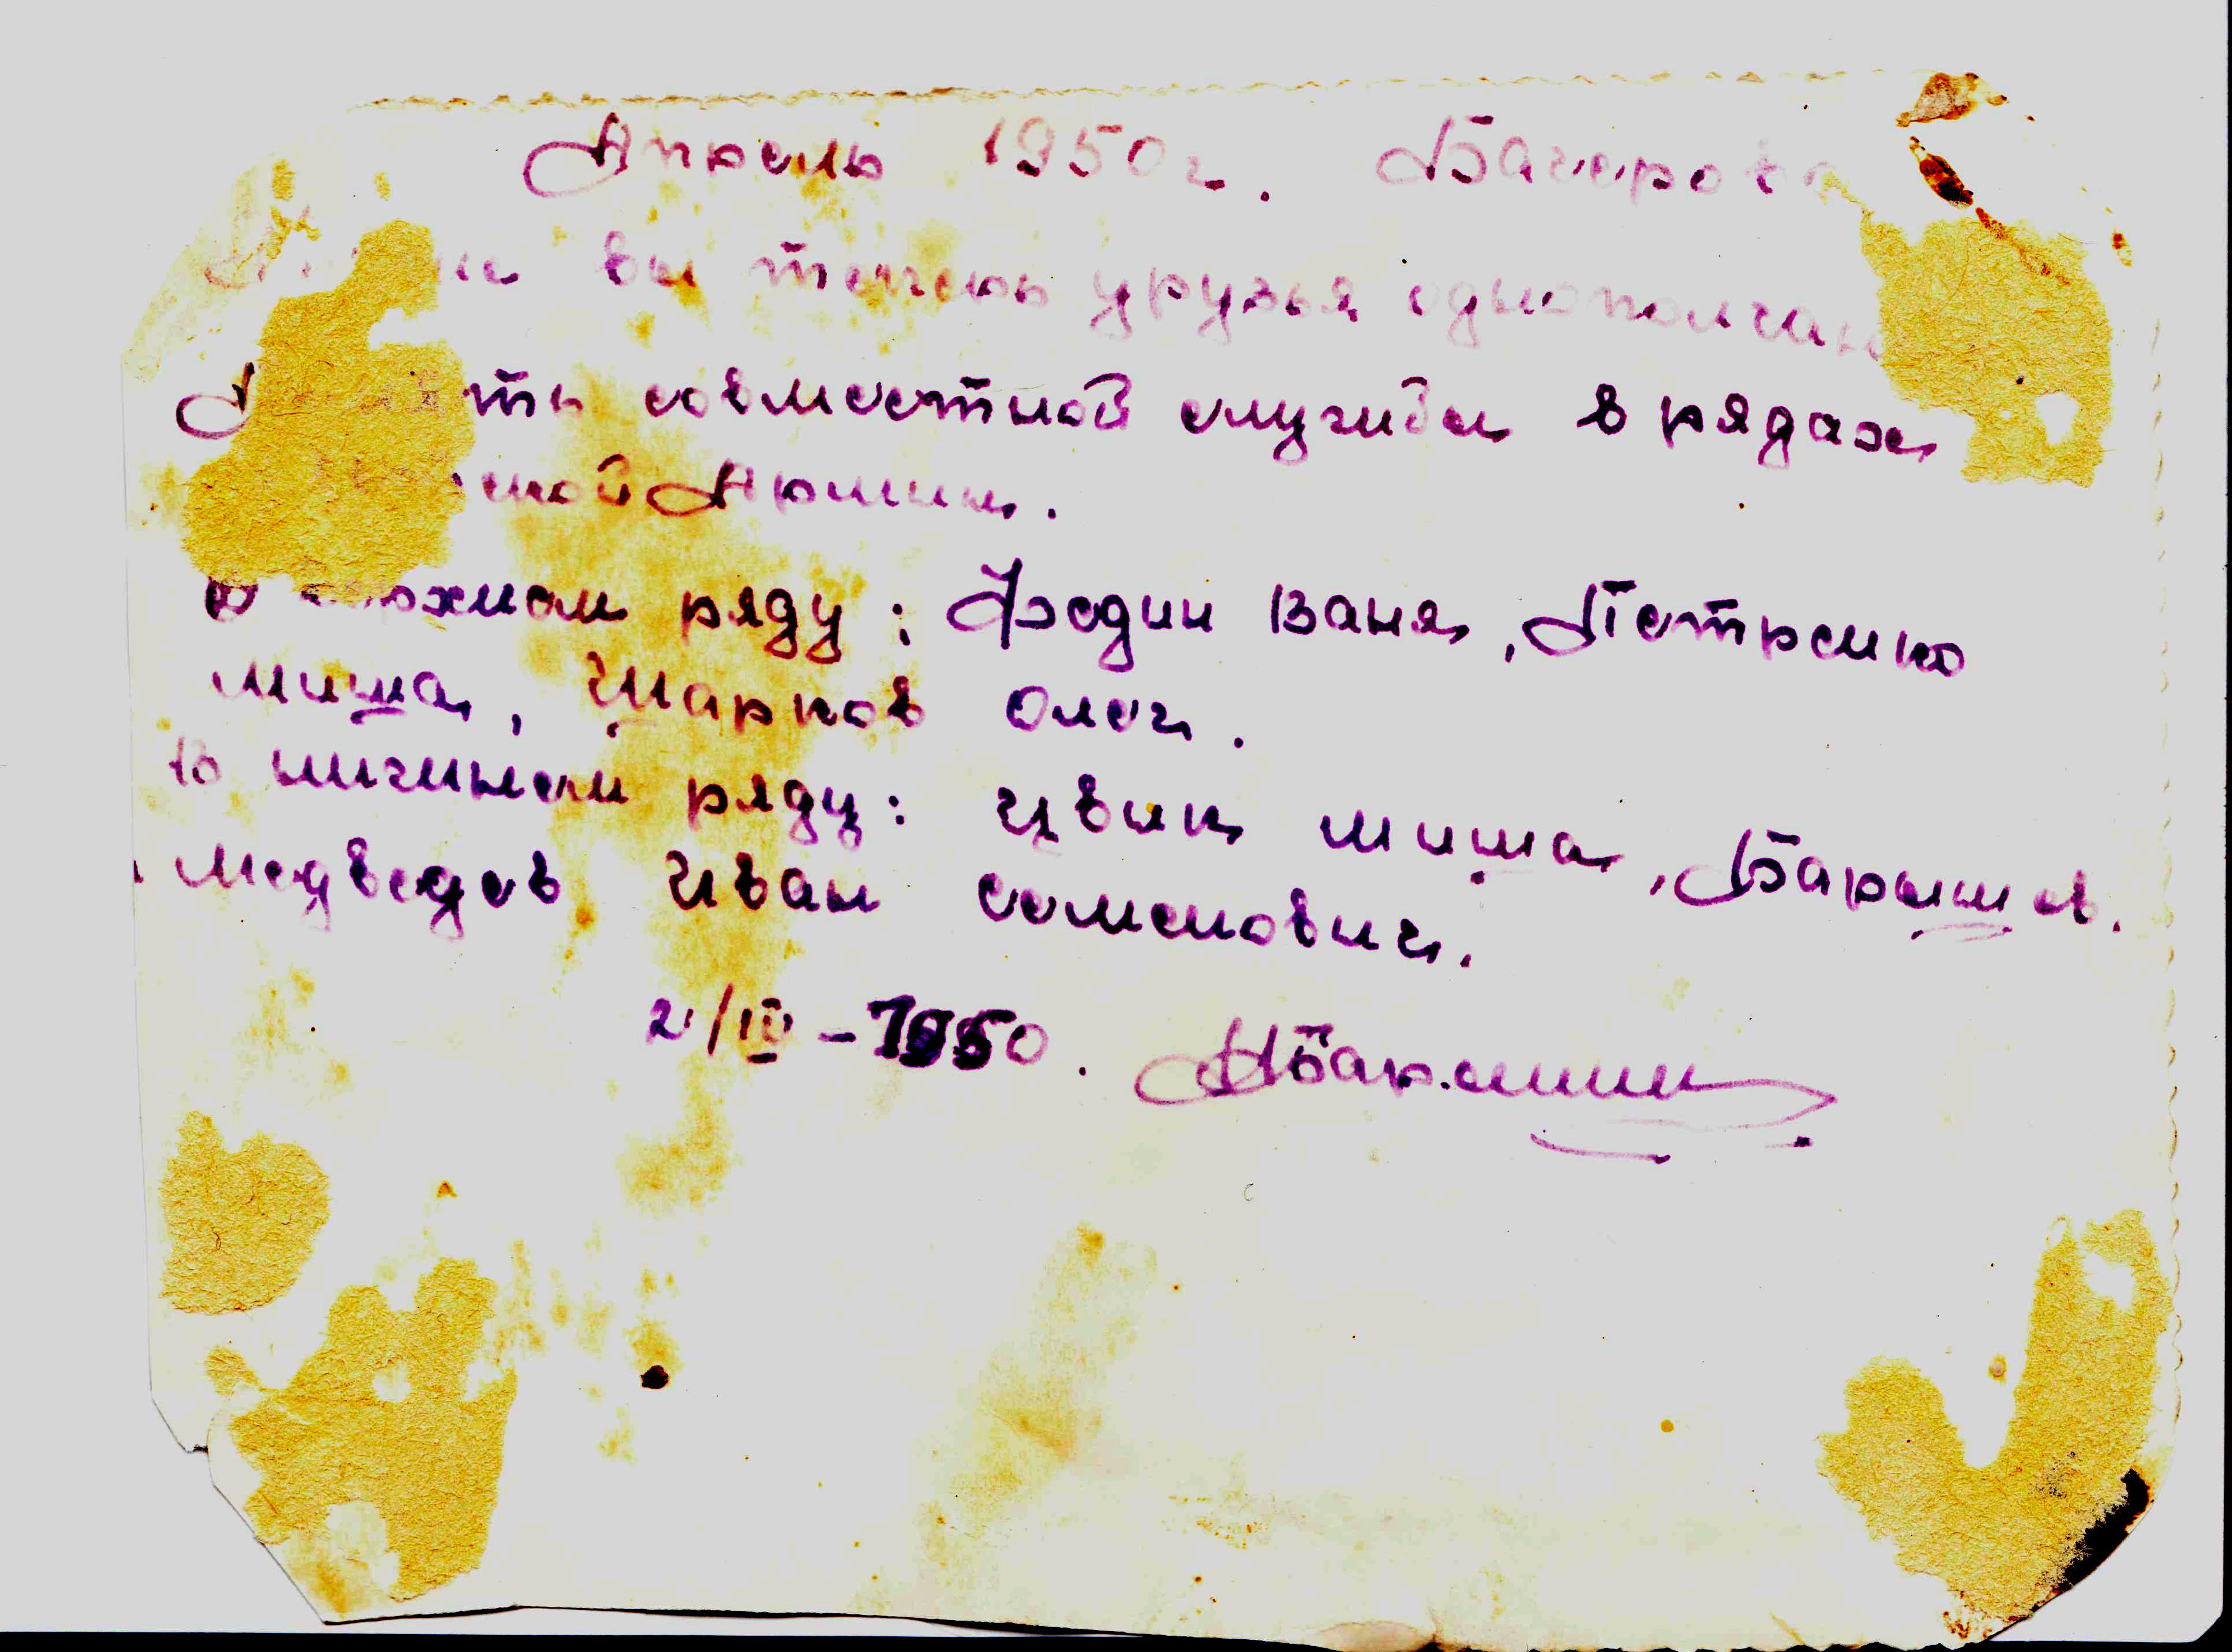 Апрель 1950г. Багерово
вы теперь друзья однополчане
совместной службы в рядах
Армии.
В верхнем ряду: Федин Ваня, Петренко
Миша, Шарков Олег.
В нижнем ряду: Цвик Миша, Барышев.
и Медведев Иван Семенович.
2/IV-1950.